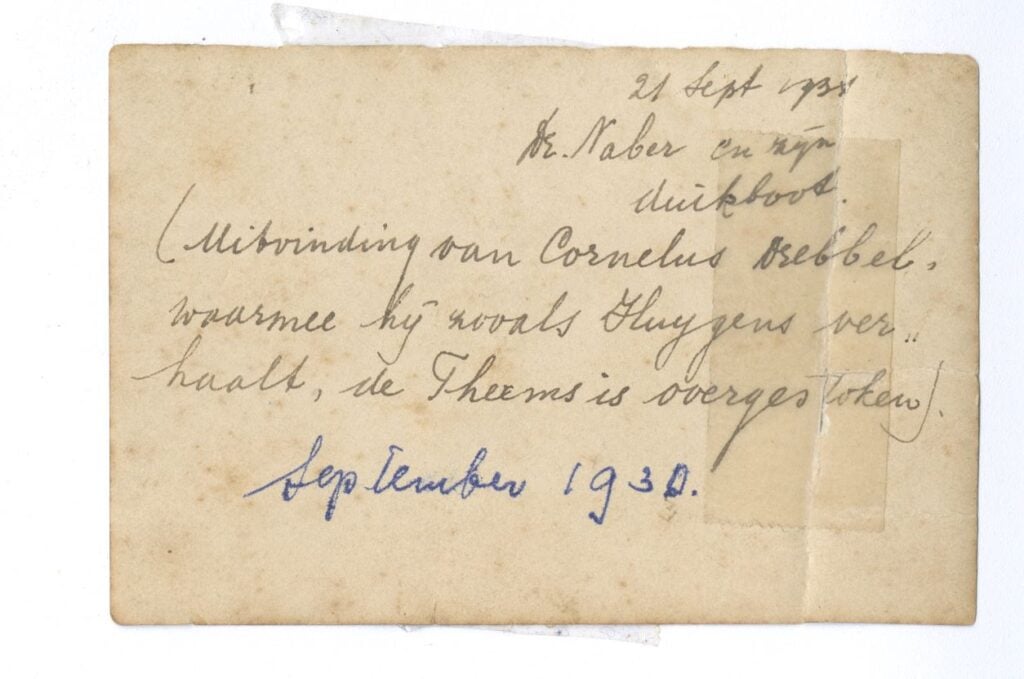 21 Sept 193
Dr. Naber en zijn
duikboot.
(Uitvinding van Cornelus Drebbel,
waarmee hij zooals Huygens ver„
haalt, de Theems is overgestoken).
September 1930.